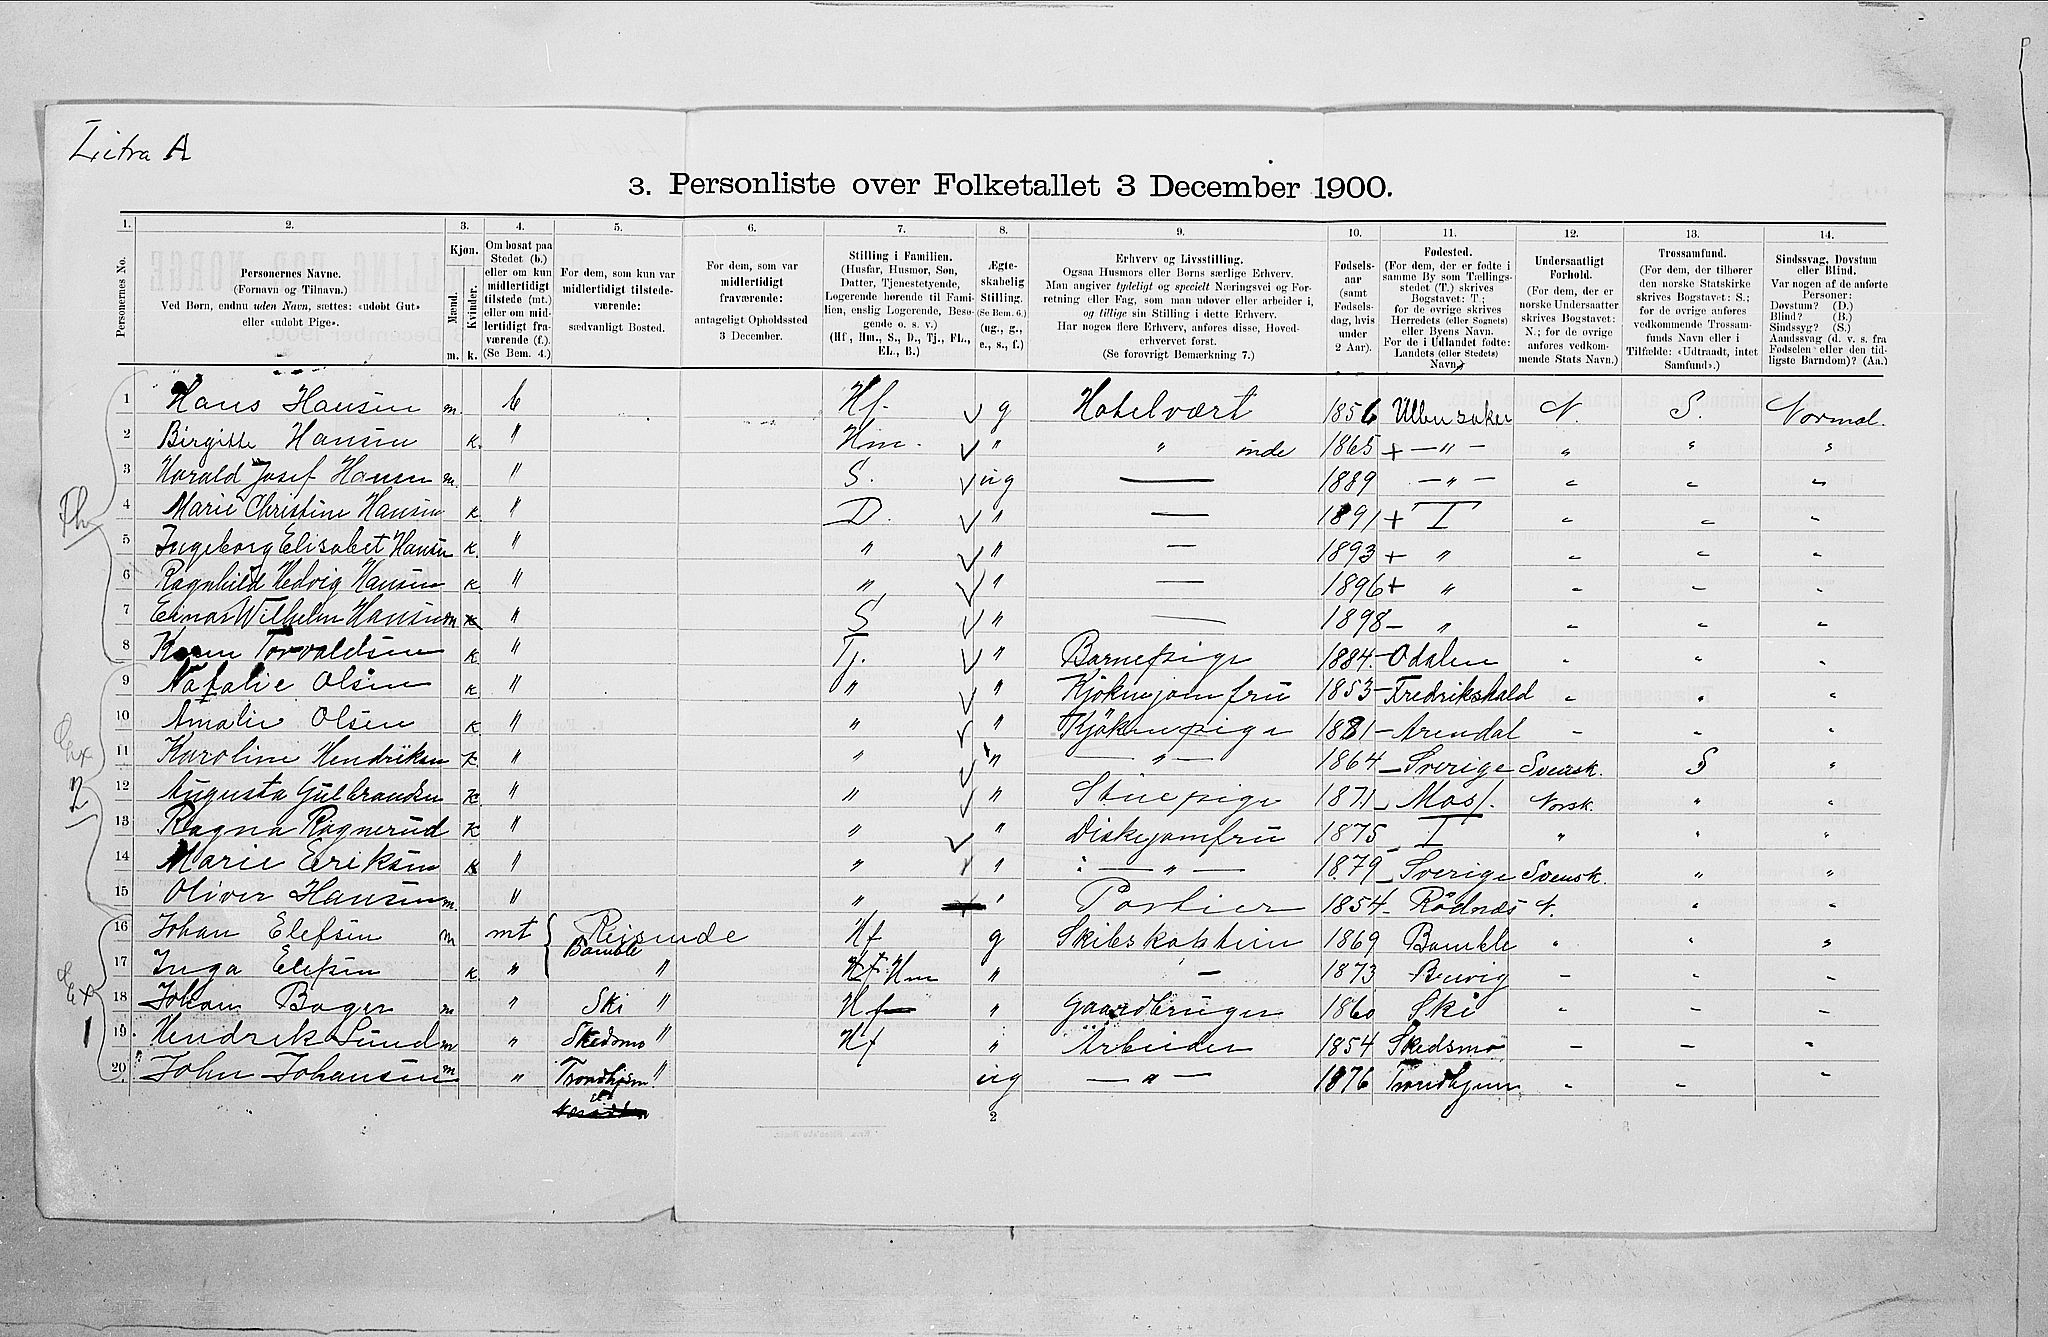 Litra A
3. Personliste over Folketallet 3 December 1900.
1. 2. 3. 4. 5. 6. 7. 8. 9. 10. 11. 12. 13. 14.
Personernes No.
Personernes Navne.
(Fornavn og Tilnavn.)
Ved Børn, endnu uden Navn, sættes: «udobt Gut»
eller «udobt Pige».
Kjøn.
Mænd. Kvinder.
m. k.
Om bosat paa
Stedet (b.)
eller om kun
midlertidigt
tilstede (mt.)
eller om mid-
lertidigt fra-
værende (f.).
(Se Bem. 4.)
For dem, som kun var
midlertidigt tilstede-
værende:
sædvanligt Bosted.
For dem, som var
midlertidigt
fraværende:
antageligt Opholdssted
3 December.
Stilling i Familien.
(Husfar, Husmor, Søn,
Datter, Tjenestetyende,
Logerende hørende til Fami-
lien, enslig Logerende, Besø-
gende o. s. v.)
(Hf, Hm., S., D., Tj., FL.,
EL., B.)
Ægte-
skabelig
Stilling.
(Se Bem. 6.)
(ug., g.,
e., s., f.)
Erhverv og Livsstilling.
Ogsaa Husmors eller Børns særlige Erhverv.
Man angiver tydeligt og specielt Næringsvei og For-
retning eller Fag, som man udøver eller arbeider i,
og tillige sin Stilling i dette Erhverv.
Har nogen flere Erhverv, anføres disse, Hoved-
erhvervet først.
(Se forøvrigt Bemærkning 7.)
Fødsels-
aar
(samt
Fødsels-
dag, hvis
under
2 Aar).
Fødested.
(For dem, der er fødte i
samme By som Tællings-
stedet (T.) skrives
Bogstavet: T.;
for de øvrige skrives
Herredets (eller Sognets)
eller Byens Navn.
For de i Udlandet fødte:
Landets (eller Stedets)
Navn.)
Undersaatligt
Forhold.
(For dem, der er
norske Undersaatter
skrives Bogstavet:
N.; for de øvrige
anføres vedkom-
mende Stats Navn.)
Trossamfund.
(For dem, der tilhører
den norske Statskirke
skrives Bogstavet: S.;
for de øvrige anføres
vedkommende Trossam-
funds Navn eller i
Tilfælde: «Udtraadt, intet
Samfund».)
Sindssvag, Døvstum
eller Blind.
Var nogen af de anførte
Personer:
Døvstum? (D.)
Blind? (B.)
Sindssyg? (S.)
Aandssvag (d. v. s. fra
Fødselen eller den tid-
ligste Barndom)? (Aa.)
1 Hans Hansen m. b Hf. g Hotelvært 1856 Ullensaker N. S. Normal.
2 Birgitte Hansen k. " Hm. " " inde 1865 + — " — " " "
3 Harald Josef Hansen m. " S. ug — 1889 — " — " " "
4 Marie Christine Hansen k. " D. " — 1891 + T " " "
5 Ingeborg Elisabet Hansen k. " " " — 1893 + " " " "
6 Ragnhild Hedvig Hansen k. " " " — 1896 + " " " "
7 Einar Wilhelm Hansen m " S " — 1898 — " " " "
8 Karen Torvaldsen k. " Tj. " Barnepige 1884 — Odalen " " "
9 Natalie Olsen k " " " Kjøkenjomfru 1853 — Fredrikshald " " "
10 Amalie Olsen k " " " Kjökenpige 1881 — Arendal " " "
11 Karoline Hendriksen k " " " — " — 1864 — Sverige Svensk. S "
12 Augusta Gulbrandsen k " " " Stuepige 1871 — Moss. Norsk. " "
13 Ragna Ragnerud k " " " Diskejomfru 1875 T " " "
14 Marie Eriksen k " " " — " — 1879 — Sverige Svensk. " "
15 Oliver Hansen m. " " " Portier 1854 — Rödnæs N. " "
16 Johan Elefsen m mt { Reisende Bamble Hf g Skibskaptein 1869 Bamble " " "
17 Inga Elefsen k " " Hm " — 1873 Brevig — — —
18 Johan Bager m " Ski " Hf " Gaardbruger 1860 Ski " " "
19 Hendrek Lund m " Skedsmo " Hf " Arbeider 1854 Skedsmo — — "
20 John Johansen m " Trondhjem " ug — " — 1876 Trondhjem " — "
2